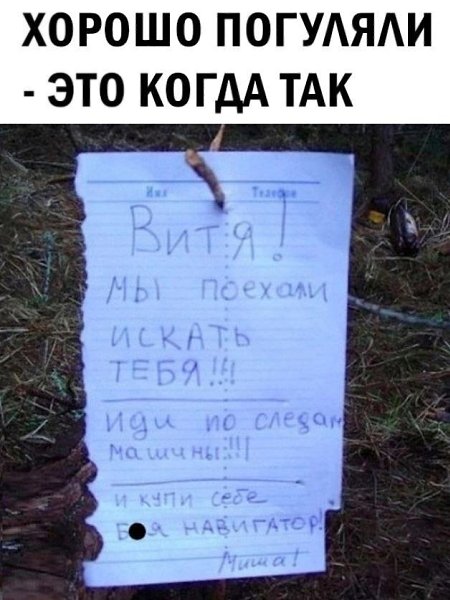 ХОРОШО ПОГУЛЯЛИ
- ЭТО КОГДА ТАК
Имя Телефон
Витя!
МЫ поехали
ИСКАТЬ
ТЕБЯ!!!
иди по следам
машины!!!
и купи себе
Б●я НАВИГАТОР!
Миша!